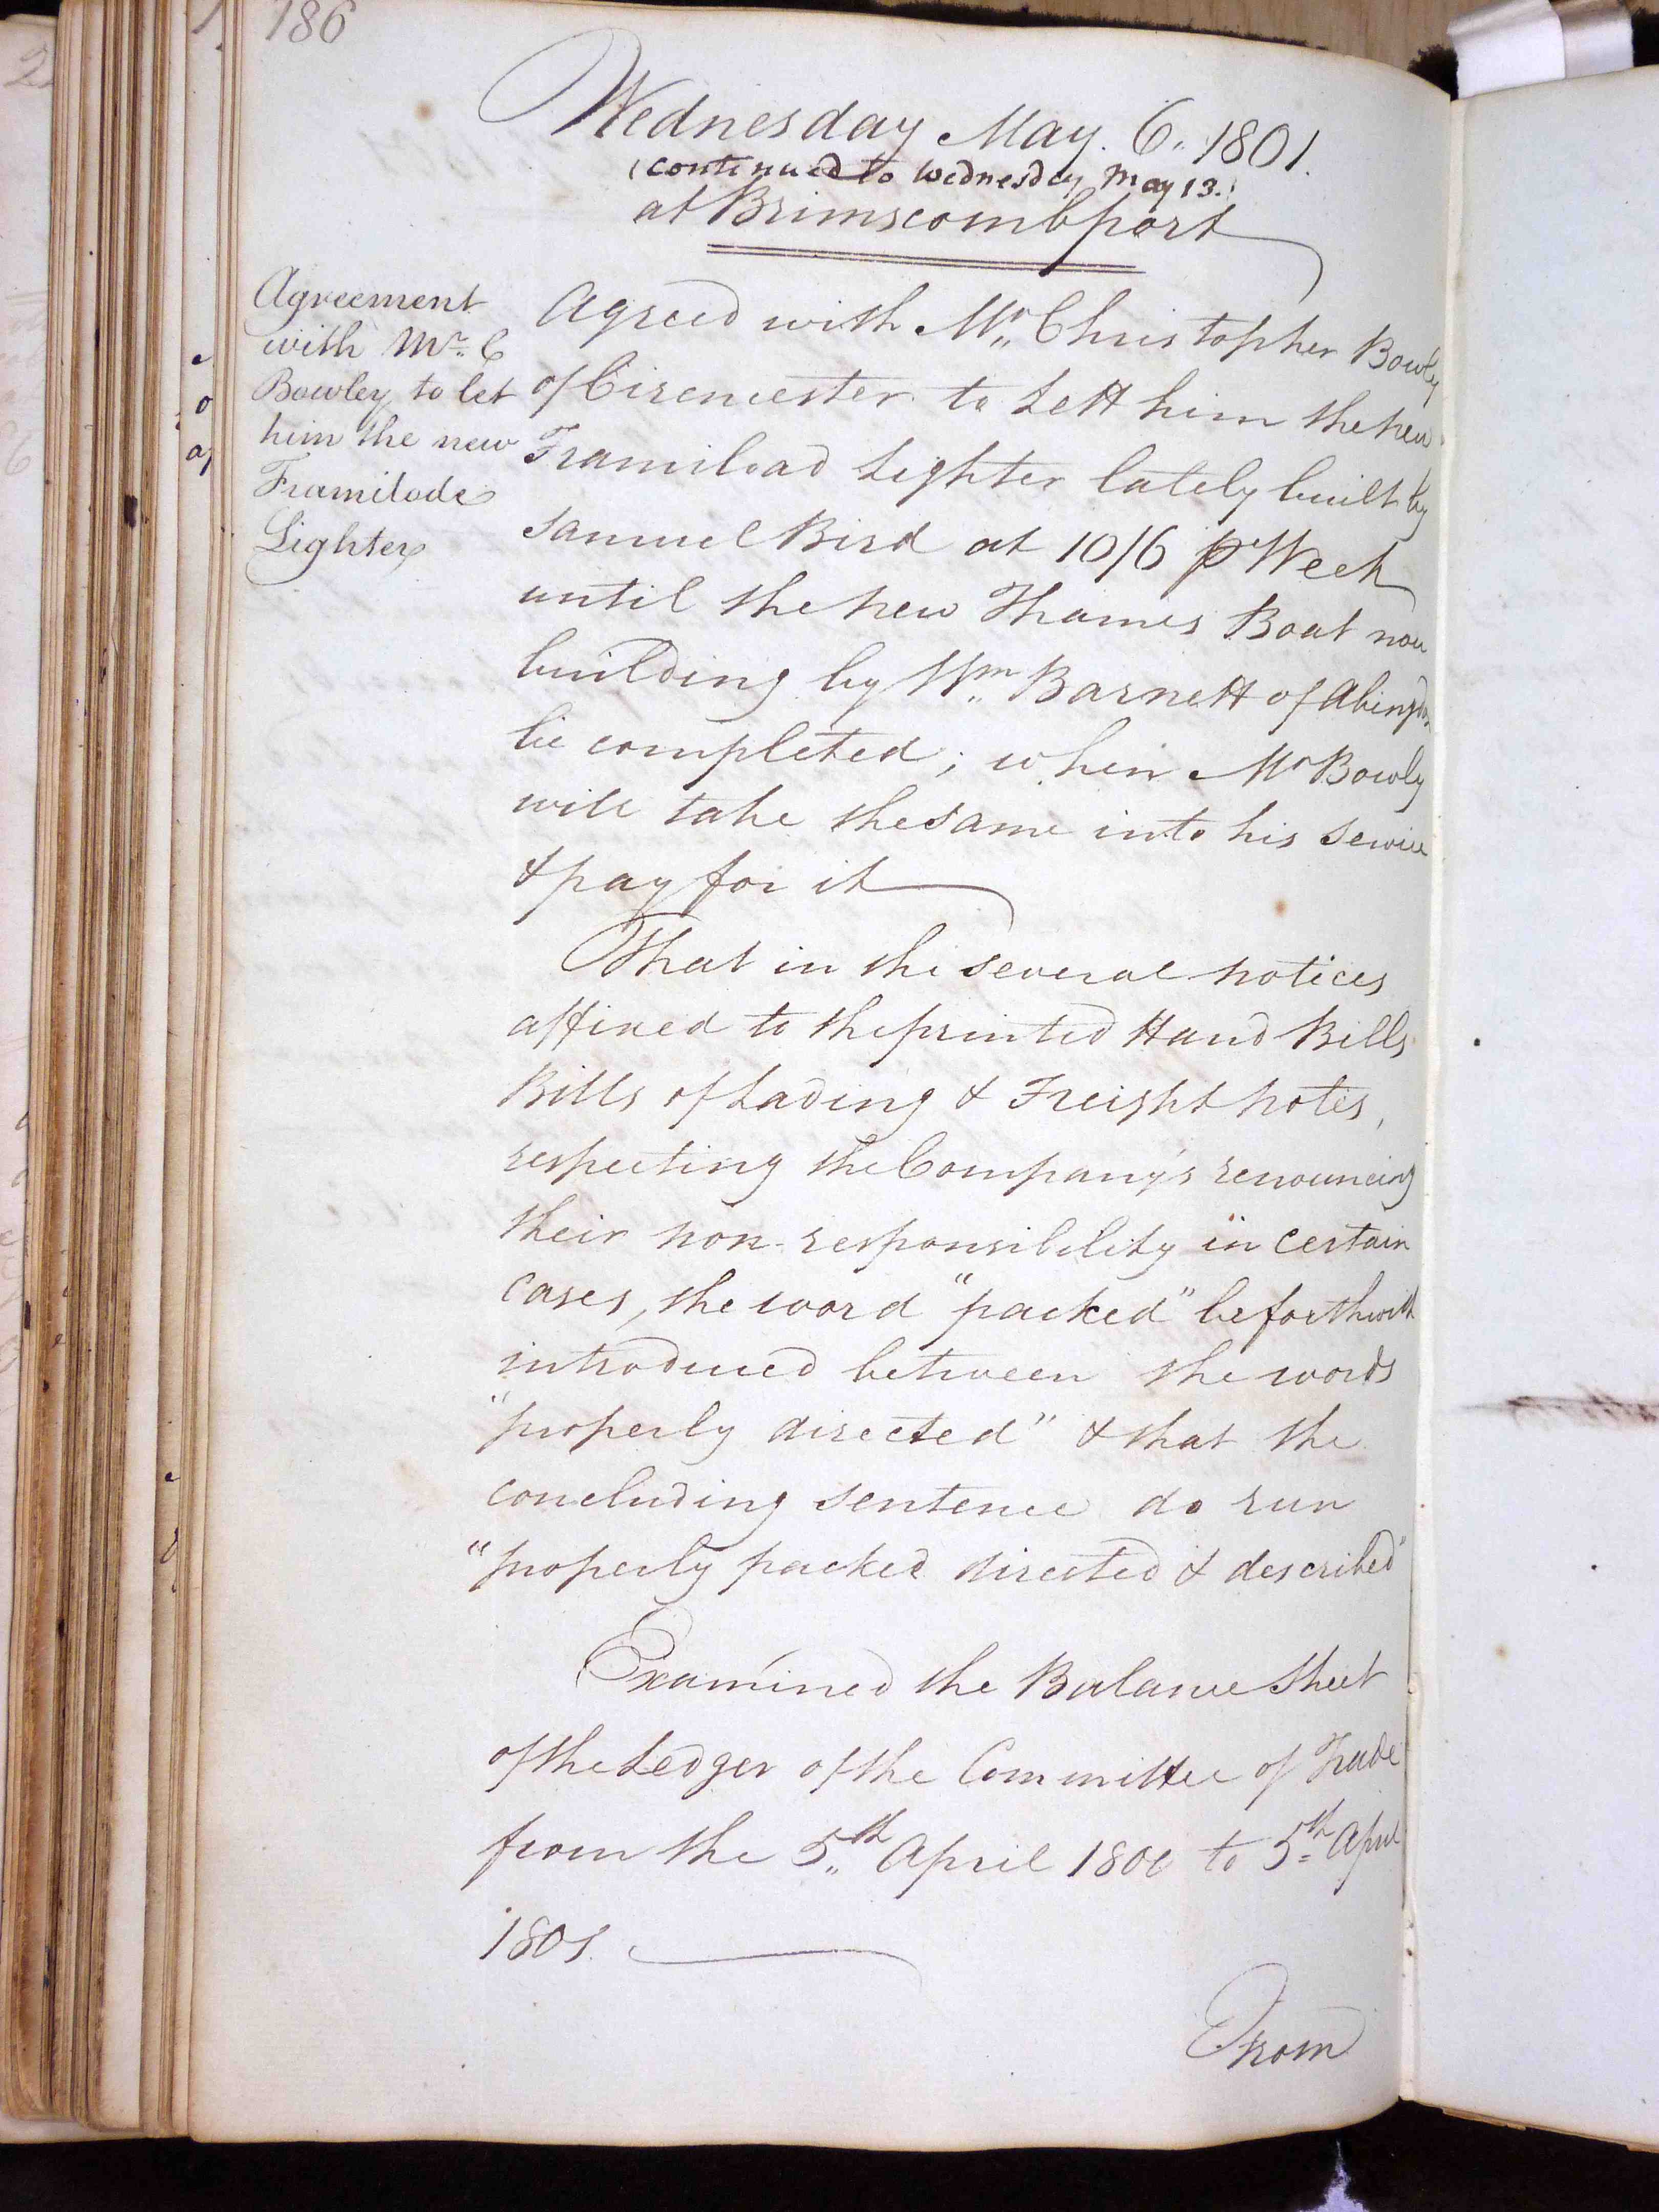 186
Wednesday May. 6. 1801.
(continued to Wednesday May 13.)
at Brimscombport
Agreement
with Mr. C
Bowley to let
him the new
Framilode
Lighter
Agreed with Mr. Christopher Bowly
of Cirencester to Lett him the new
Framiload Lighter lately built by
Samuel Bird at 10/6 p Week
until the new Thames Boat now
building by Wm. Barnett of Abingdon
be completed; when Mr Bowly
will take the same into his service
& pay for it
That in the several notices
affixed to the printed Hand Bills
Bills of Lading & Freight notes,
respecting the Company's renouncing
their non-responsibility in certain
cases, the word "packed" be forthwith
introduced between the words
"properly directed" & that the
concluding sentence do run
"properly packed directed & described"
Examined the Balance Sheet
of the Ledger of the Committee of Trade
from the 5th April 1800 to 5th April
1801.
From